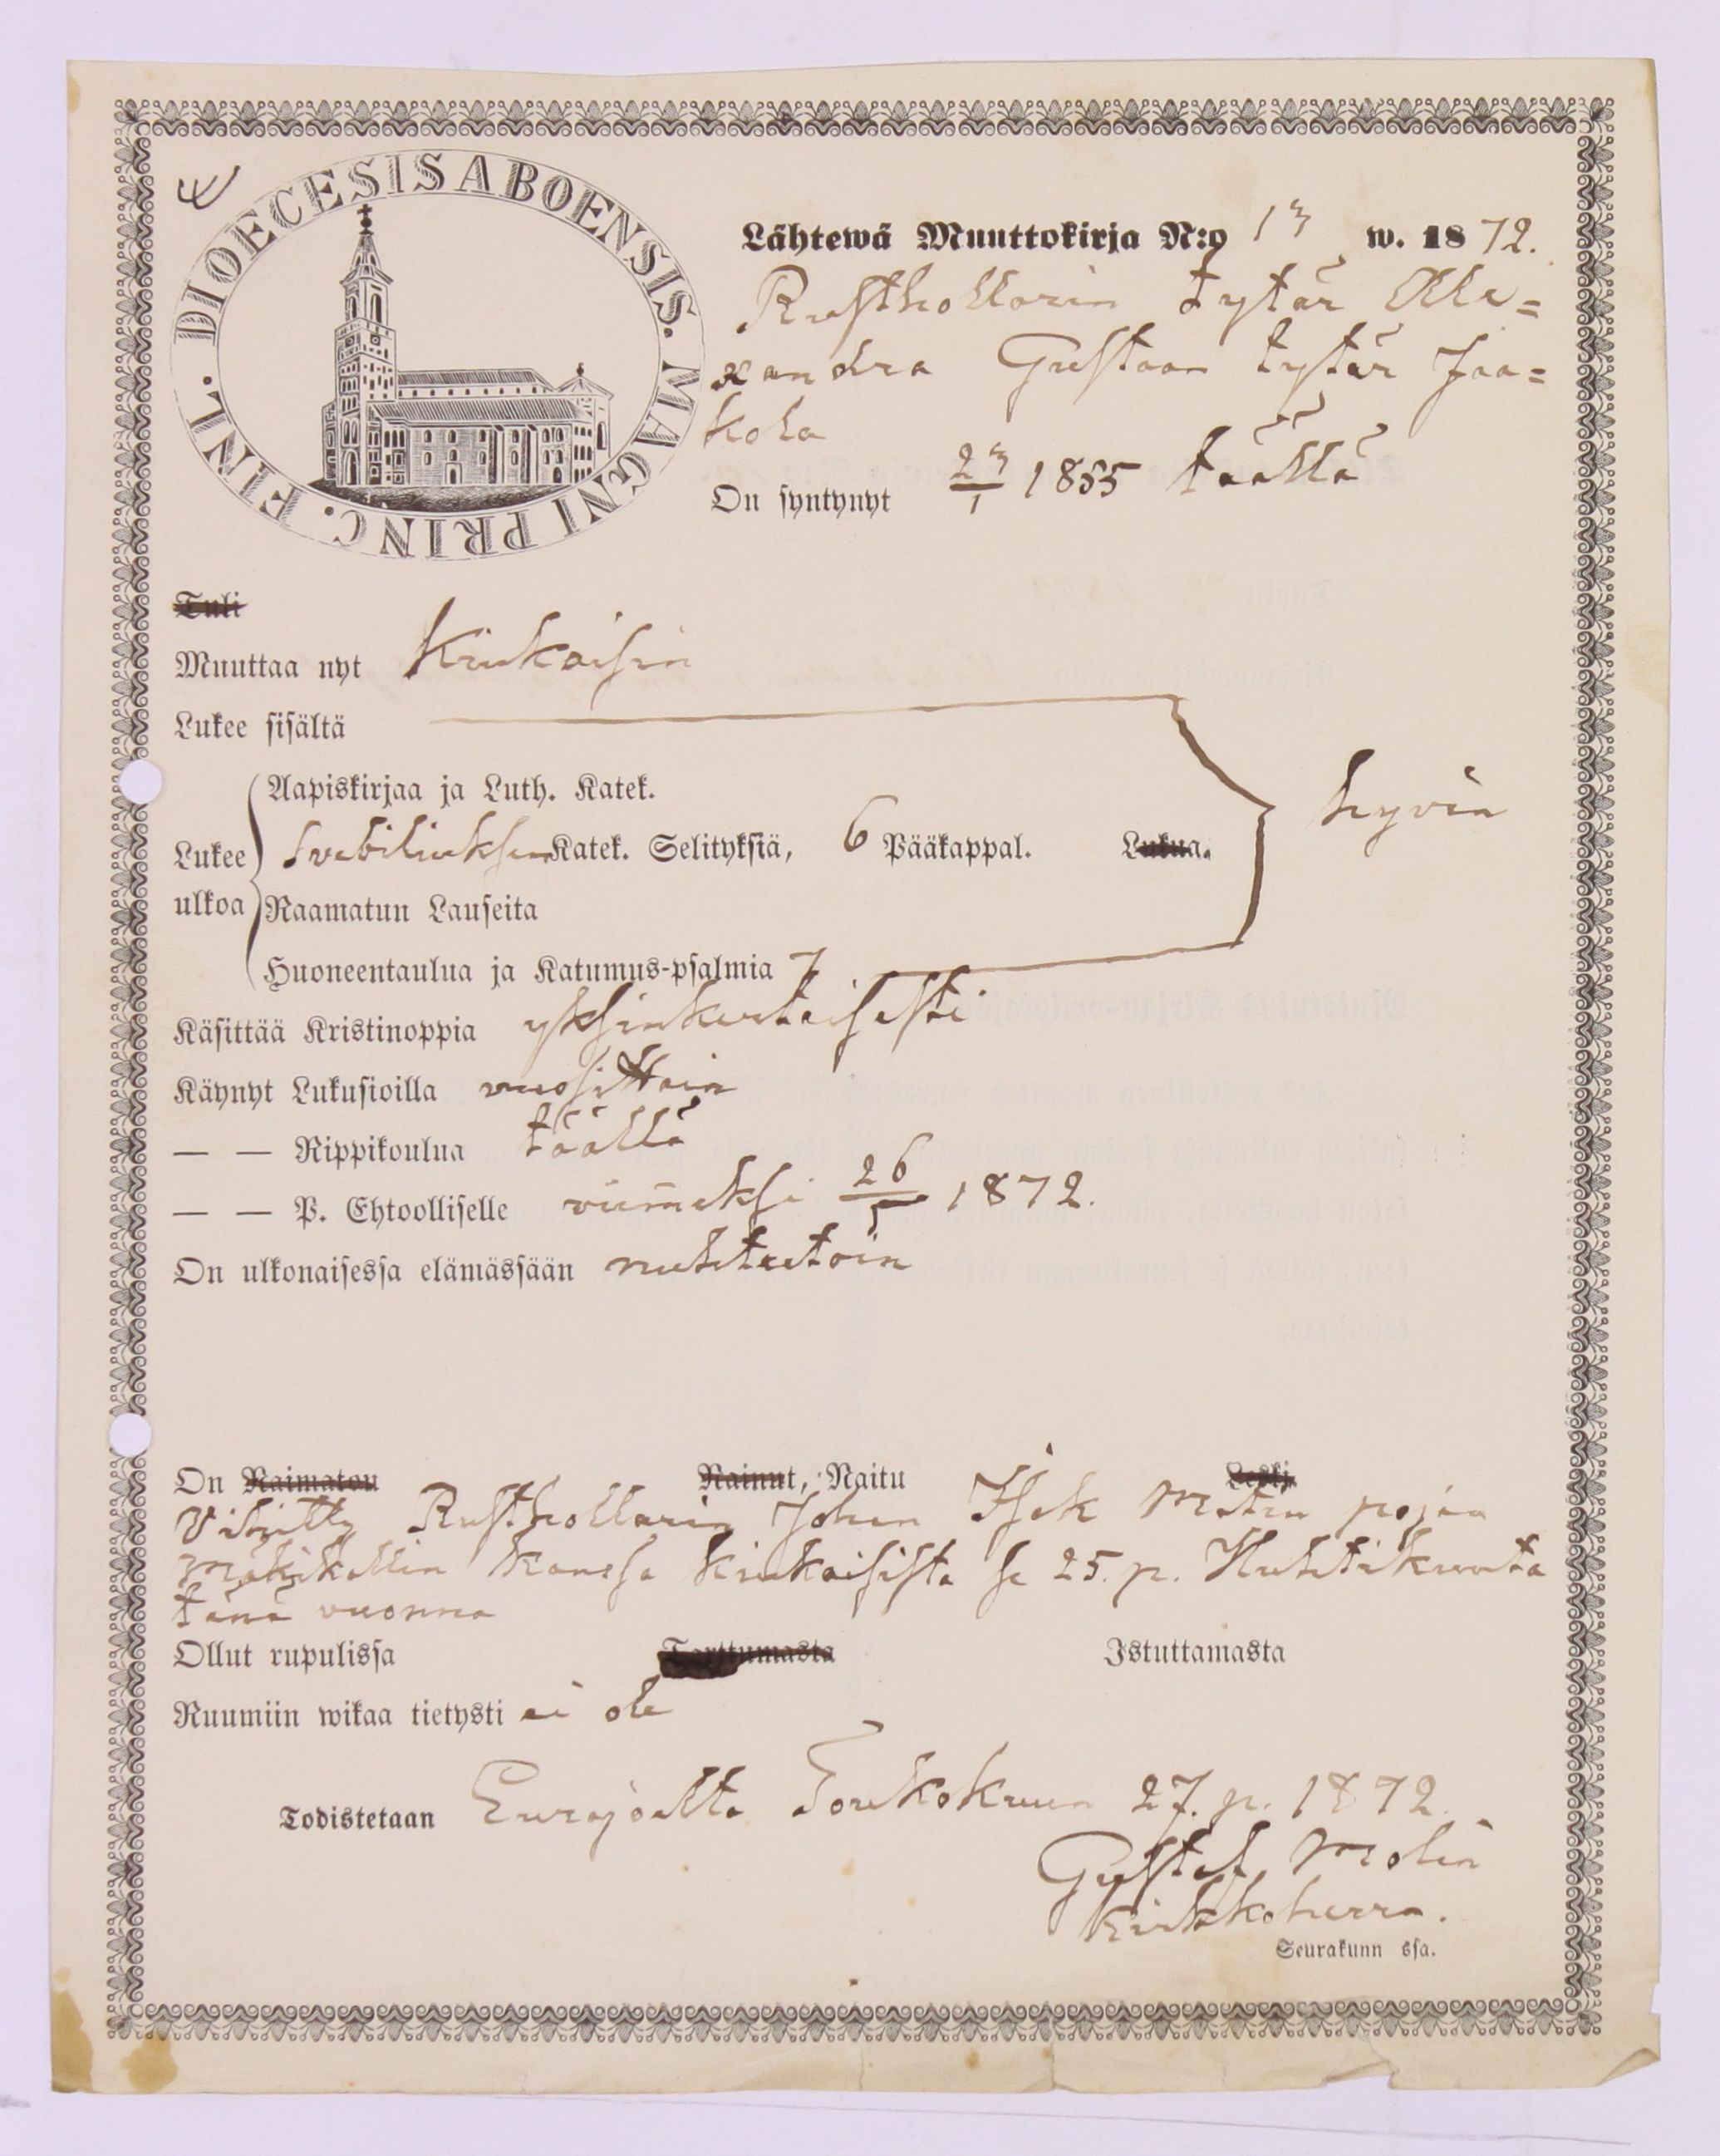 DIOECESIS ABOENSIS. MAGNI PRINC. FINL.
Lähtewä Muuttokirja N:o 13 w. 1872.
Rusthollarin tytär Ale=
xandra Gustaan tytär Jaa=
kola
On syntynyt 23/1 1855 täällä
Tuli
Muuttaa nyt Kiukaisiin
Lukee sisältä
Aapiskirjaa ja Luth. Katek.
Lukee ulkoa Svebiliuksen Katek. Selityksiä, 6 Pääkappal. Lukua. hyvin
Raamatun Lauseita
Huoneentaulua ja Katumus-psalmia 7
Käsittää Kristinoppia yksinkertaisesti
Käynyt Lukusioilla vuosittain
— — Rippikoulua täällä
— — P. Ehtoolliselle viimeksi 26/5 1872.
On ulkonaisessa elämässään nuhteetoin
On Naimaton Nainut, Naitu Leski
Vihitty Rusthollarin Johan Isak Matin pojan
Mäkikallin kanssa Kiukaisista se 25. p. Huhtikuuta
tänä vuonna
Ollut rupulissa Tarttumasta Istuttamasta
Ruumiin wikaa tietysti ei ole
Todistetaan Eurajoelta Toukokuun 27. p. 1872.
Gustaf Molin
Kirkkoherra.
Seurakunn ssa.